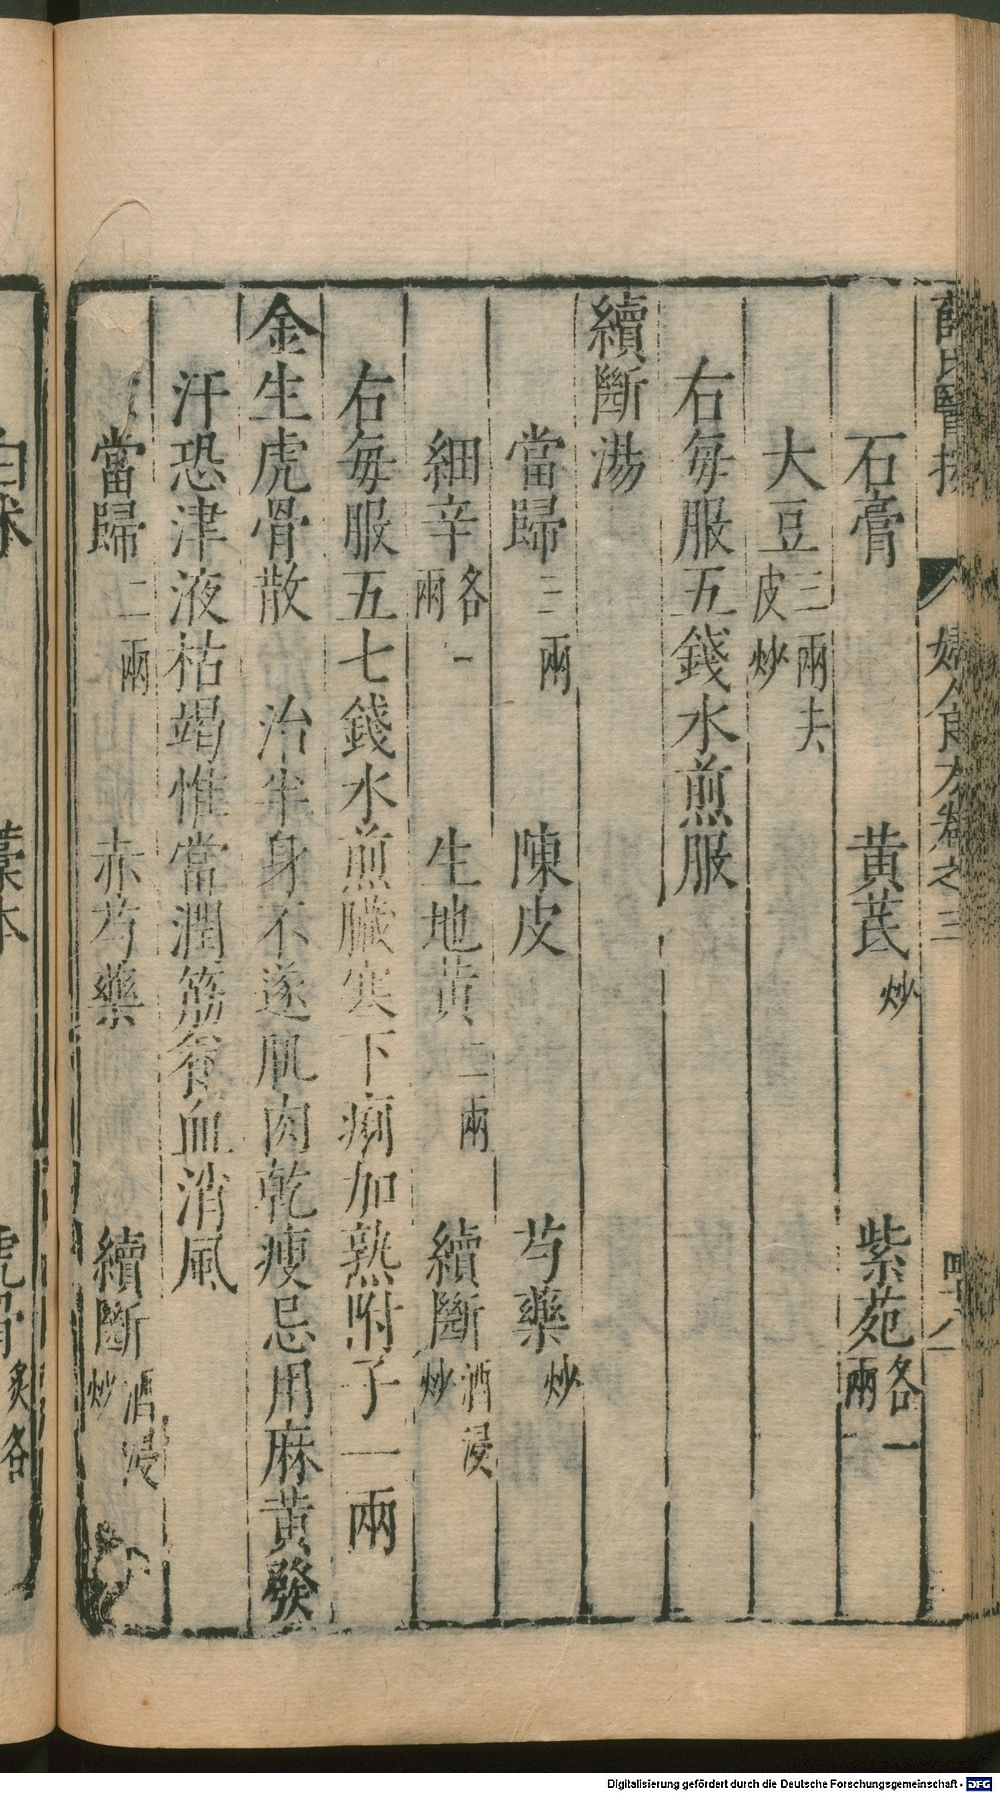 薛氏醫按 婦人良方卷之三
石膏 黃芪炒 紫菀各一兩
大豆三兩去皮炒
右每服五錢水煎服
續斷湯
當歸三兩 陳皮 芍藥炒
細辛各一兩 生地黃二兩 續斷酒浸炒
右每服五七錢水煎臟寒下痢加熟附子一兩
金生虎骨散 治半身不遂肌肉乾瘦忌用麻黃發
汗恐津液枯竭惟當潤筋養血消風
當歸二兩 赤芍藥 續斷酒浸炒
白朮 藁本 虎骨炙各
Digitalisierung gefördert durch die Deutsche Forschungsgemeinschaft - DFG